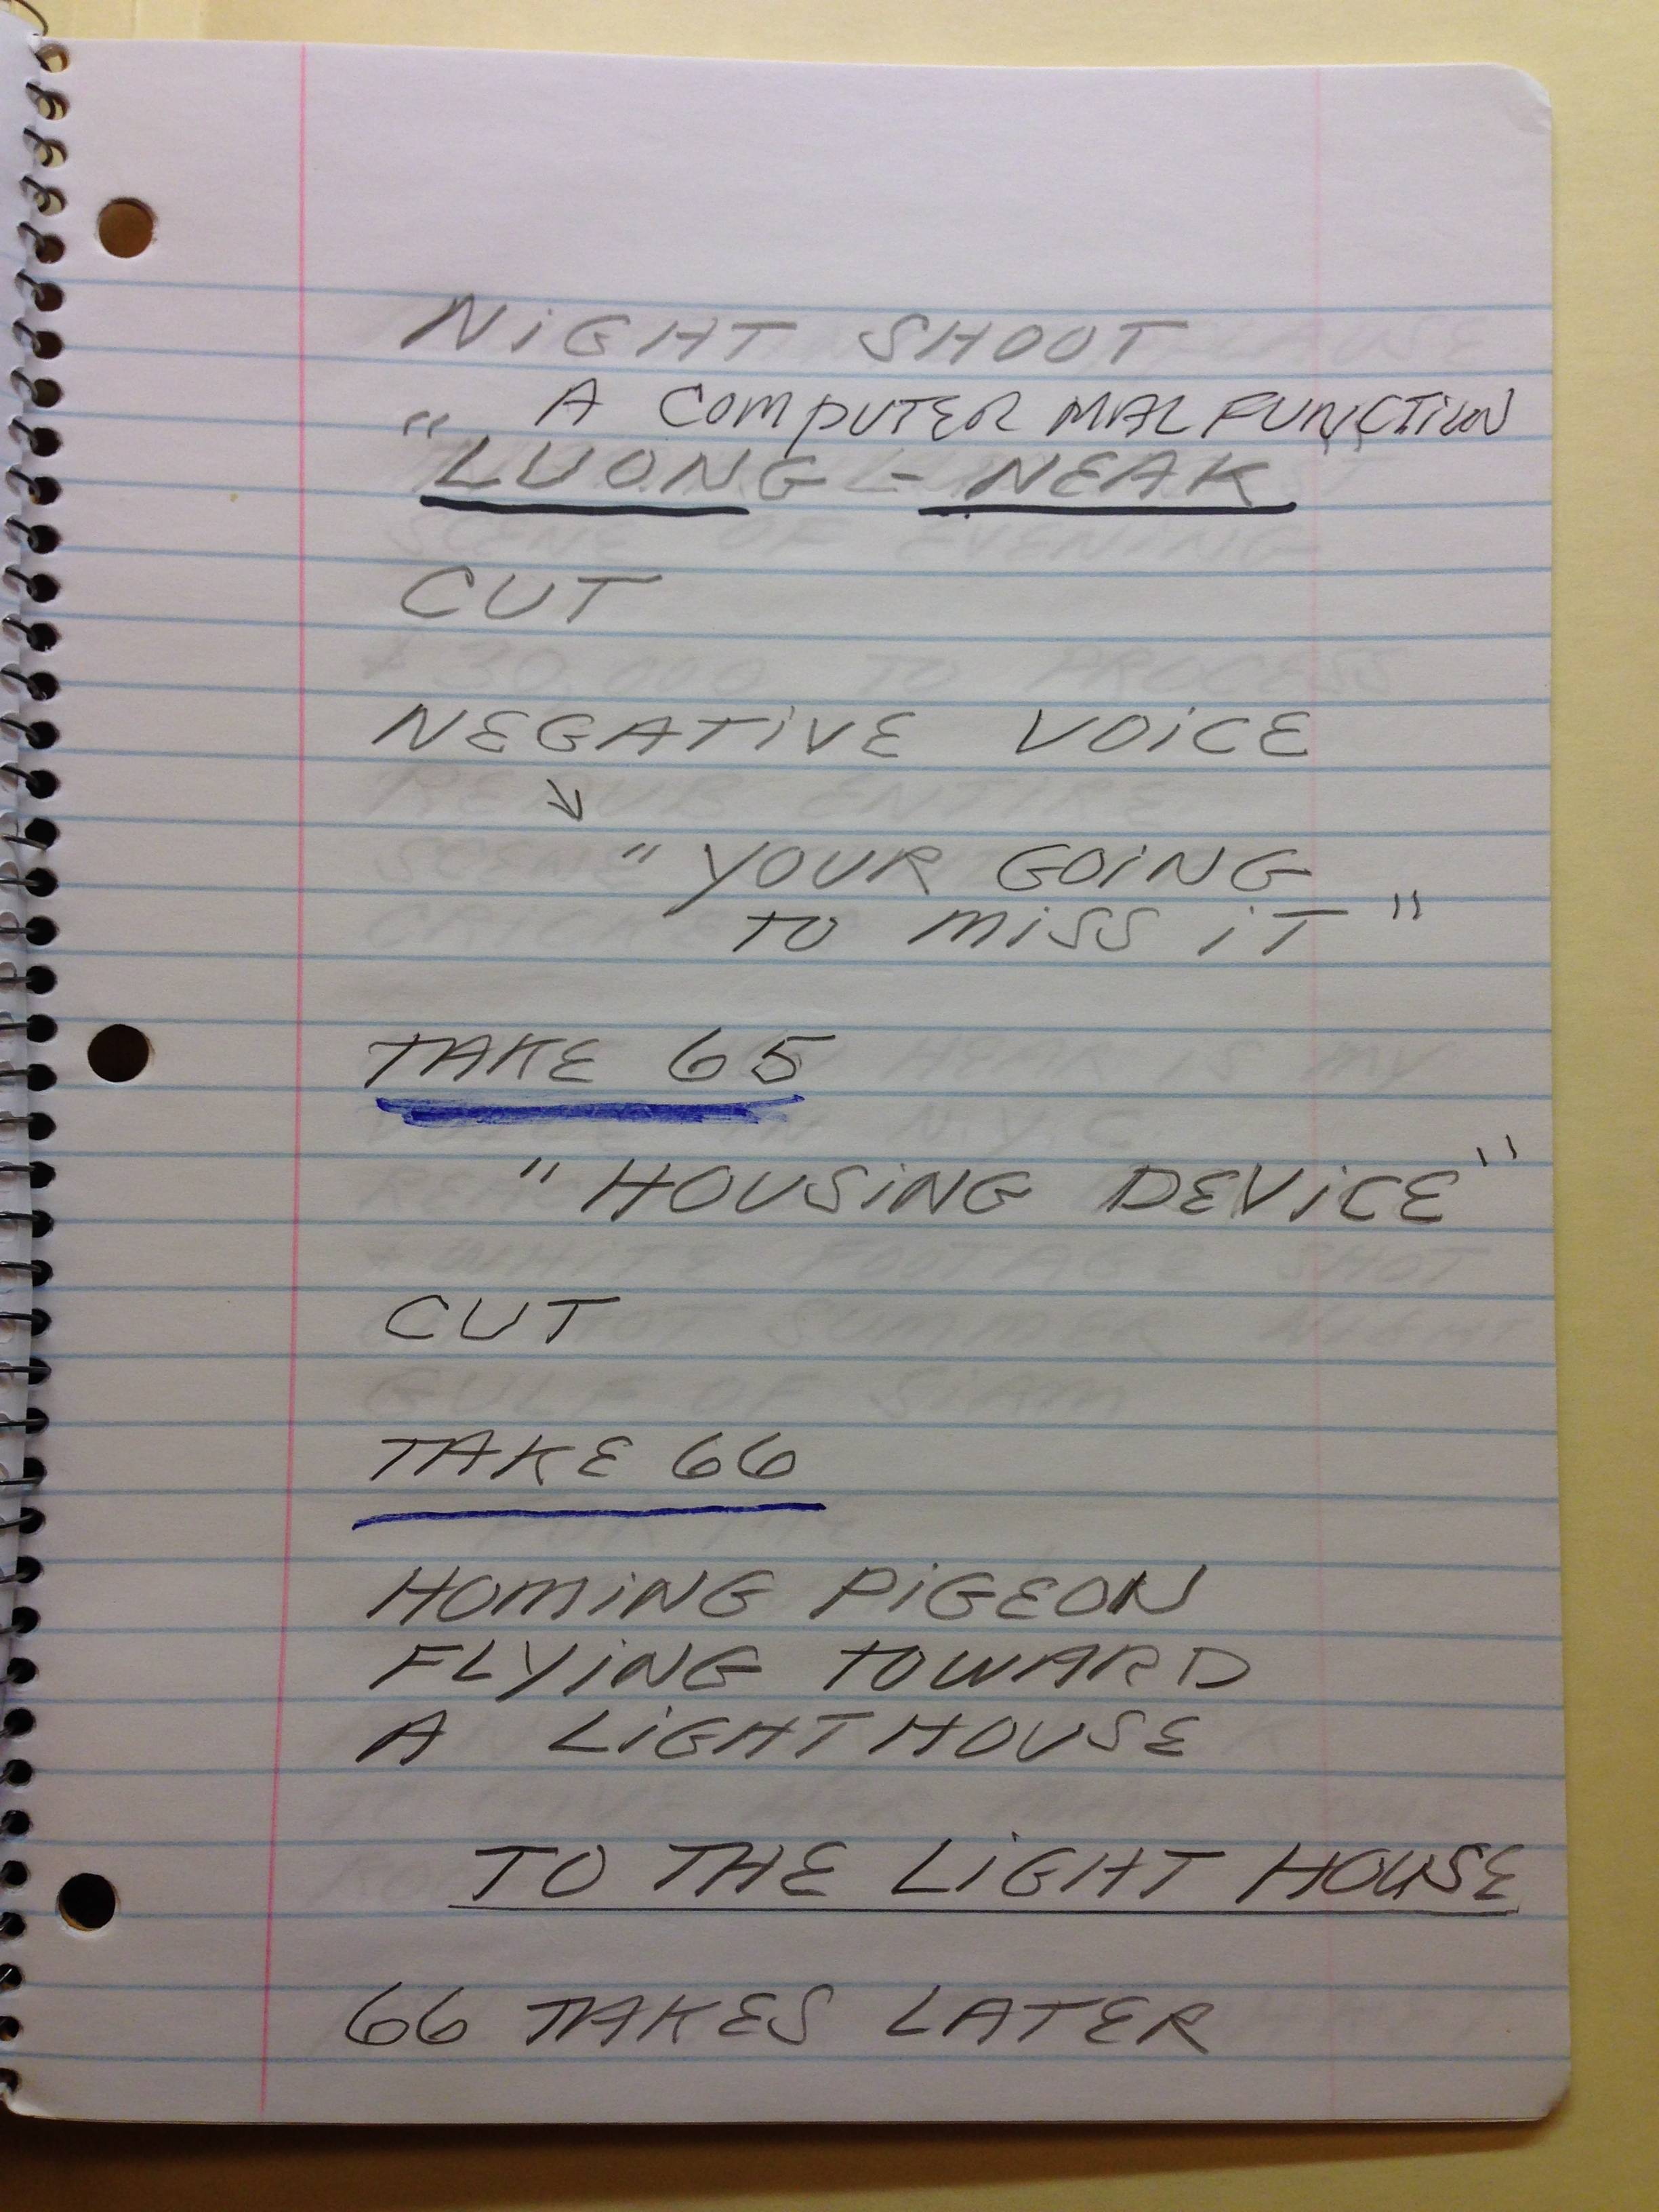 NiGHT SHOOT
A COMPUTER MALFUNCTION
" LUONG - NEAK
CUT
NEGATiVE VOiCE
↘
" YOUR GOiNG
TO MiSS iT "
TAKE 65
" HOUSiNG DEViCE "
CUT
TAKE 66
HOMiNG PiGEON
FLYiNG TOWARD
A LiGHTHOUSE
TO THE LiGHT HOUSE
66 TAKES LATER